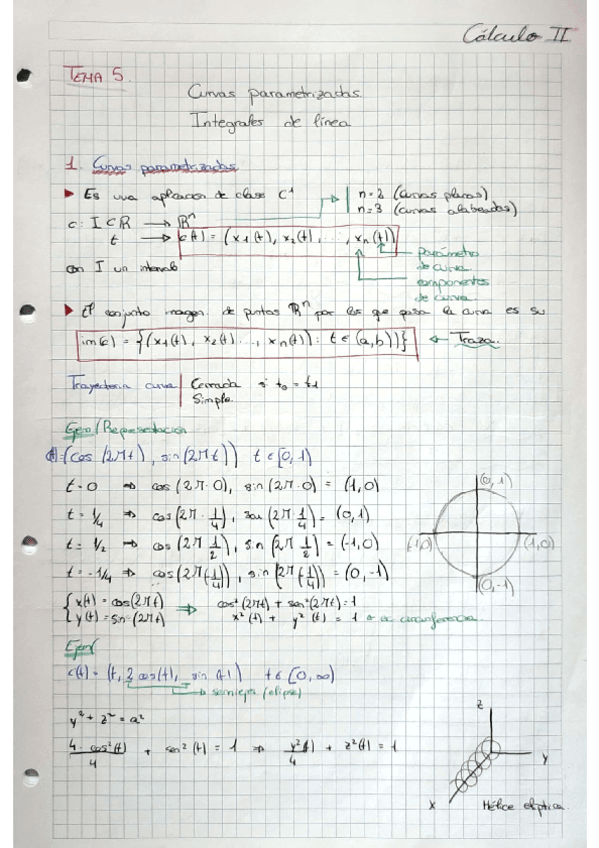 Cálculo II
TEMA 5.
Curvas parametrizadas.
Integrales de línea
1. Curvas parametrizadas
▶ Es una aplicacion de clase C¹ → | n=2 (curvas planas)
n=3 (curvas alabeadas)
c: I ⊂ R → Rⁿ
t → c(t) = (x₁(t), x₂(t), ..., xₙ(t))
con I un intervalo
parámetro de curva
componentes de curva.
▶ El conjunto imagen de puntos Rⁿ por los que pasa la curva es su
im(c) = {(x₁(t), x₂(t) ..., xₙ(t)): t ∈ (a,b))} ← Traza.
Trayectoria curva | Cerrada si t₀ = t₁
Simple.
Ejem/ Representacion
c(t)=(cos (2πt), sin(2πt)) t ∈ [0,1)
t=0 ⇒ cos(2π·0), sin(2π·0) = (1,0)
t = 1/4 ⇒ cos(2π·1/4), sen(2π·1/4) = (0,1)
t = 1/2 ⇒ cos(2π 1/2), sin(2π 1/2) = (-1,0)
t = -1/4 ⇒ cos(2π(-1/4)), sin(2π(-1/4)) = (0,-1)
(0,1)
(-1,0)
(1,0)
(0,-1)
{ x(t) = cos(2πt) ⇒ cos²(2πt) + sen²(2πt) = 1
y(t) = sin(2πt) x²(t) + y²(t) = 1 circunferencia
Ejem/
c(t) = (t, 2 cos(t), sin(t)) t ∈ [0, ∞)
→ semieje (elipse)
y² + z² = a²
4·cos²(t)/4 + sen²(t) = 1 ⇒ y²(t)/4 + z²(t) = 1
z
y
x
Hélice elíptica.